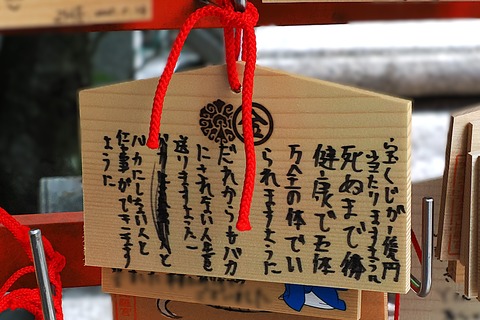 金
宝くじが一億円
当たりますように
死ぬまで
健康で五体
万全の体でい
られますように
だれからもバカ
にされない人生を
送りますように
バカにしない人と
仕事ができます
ように